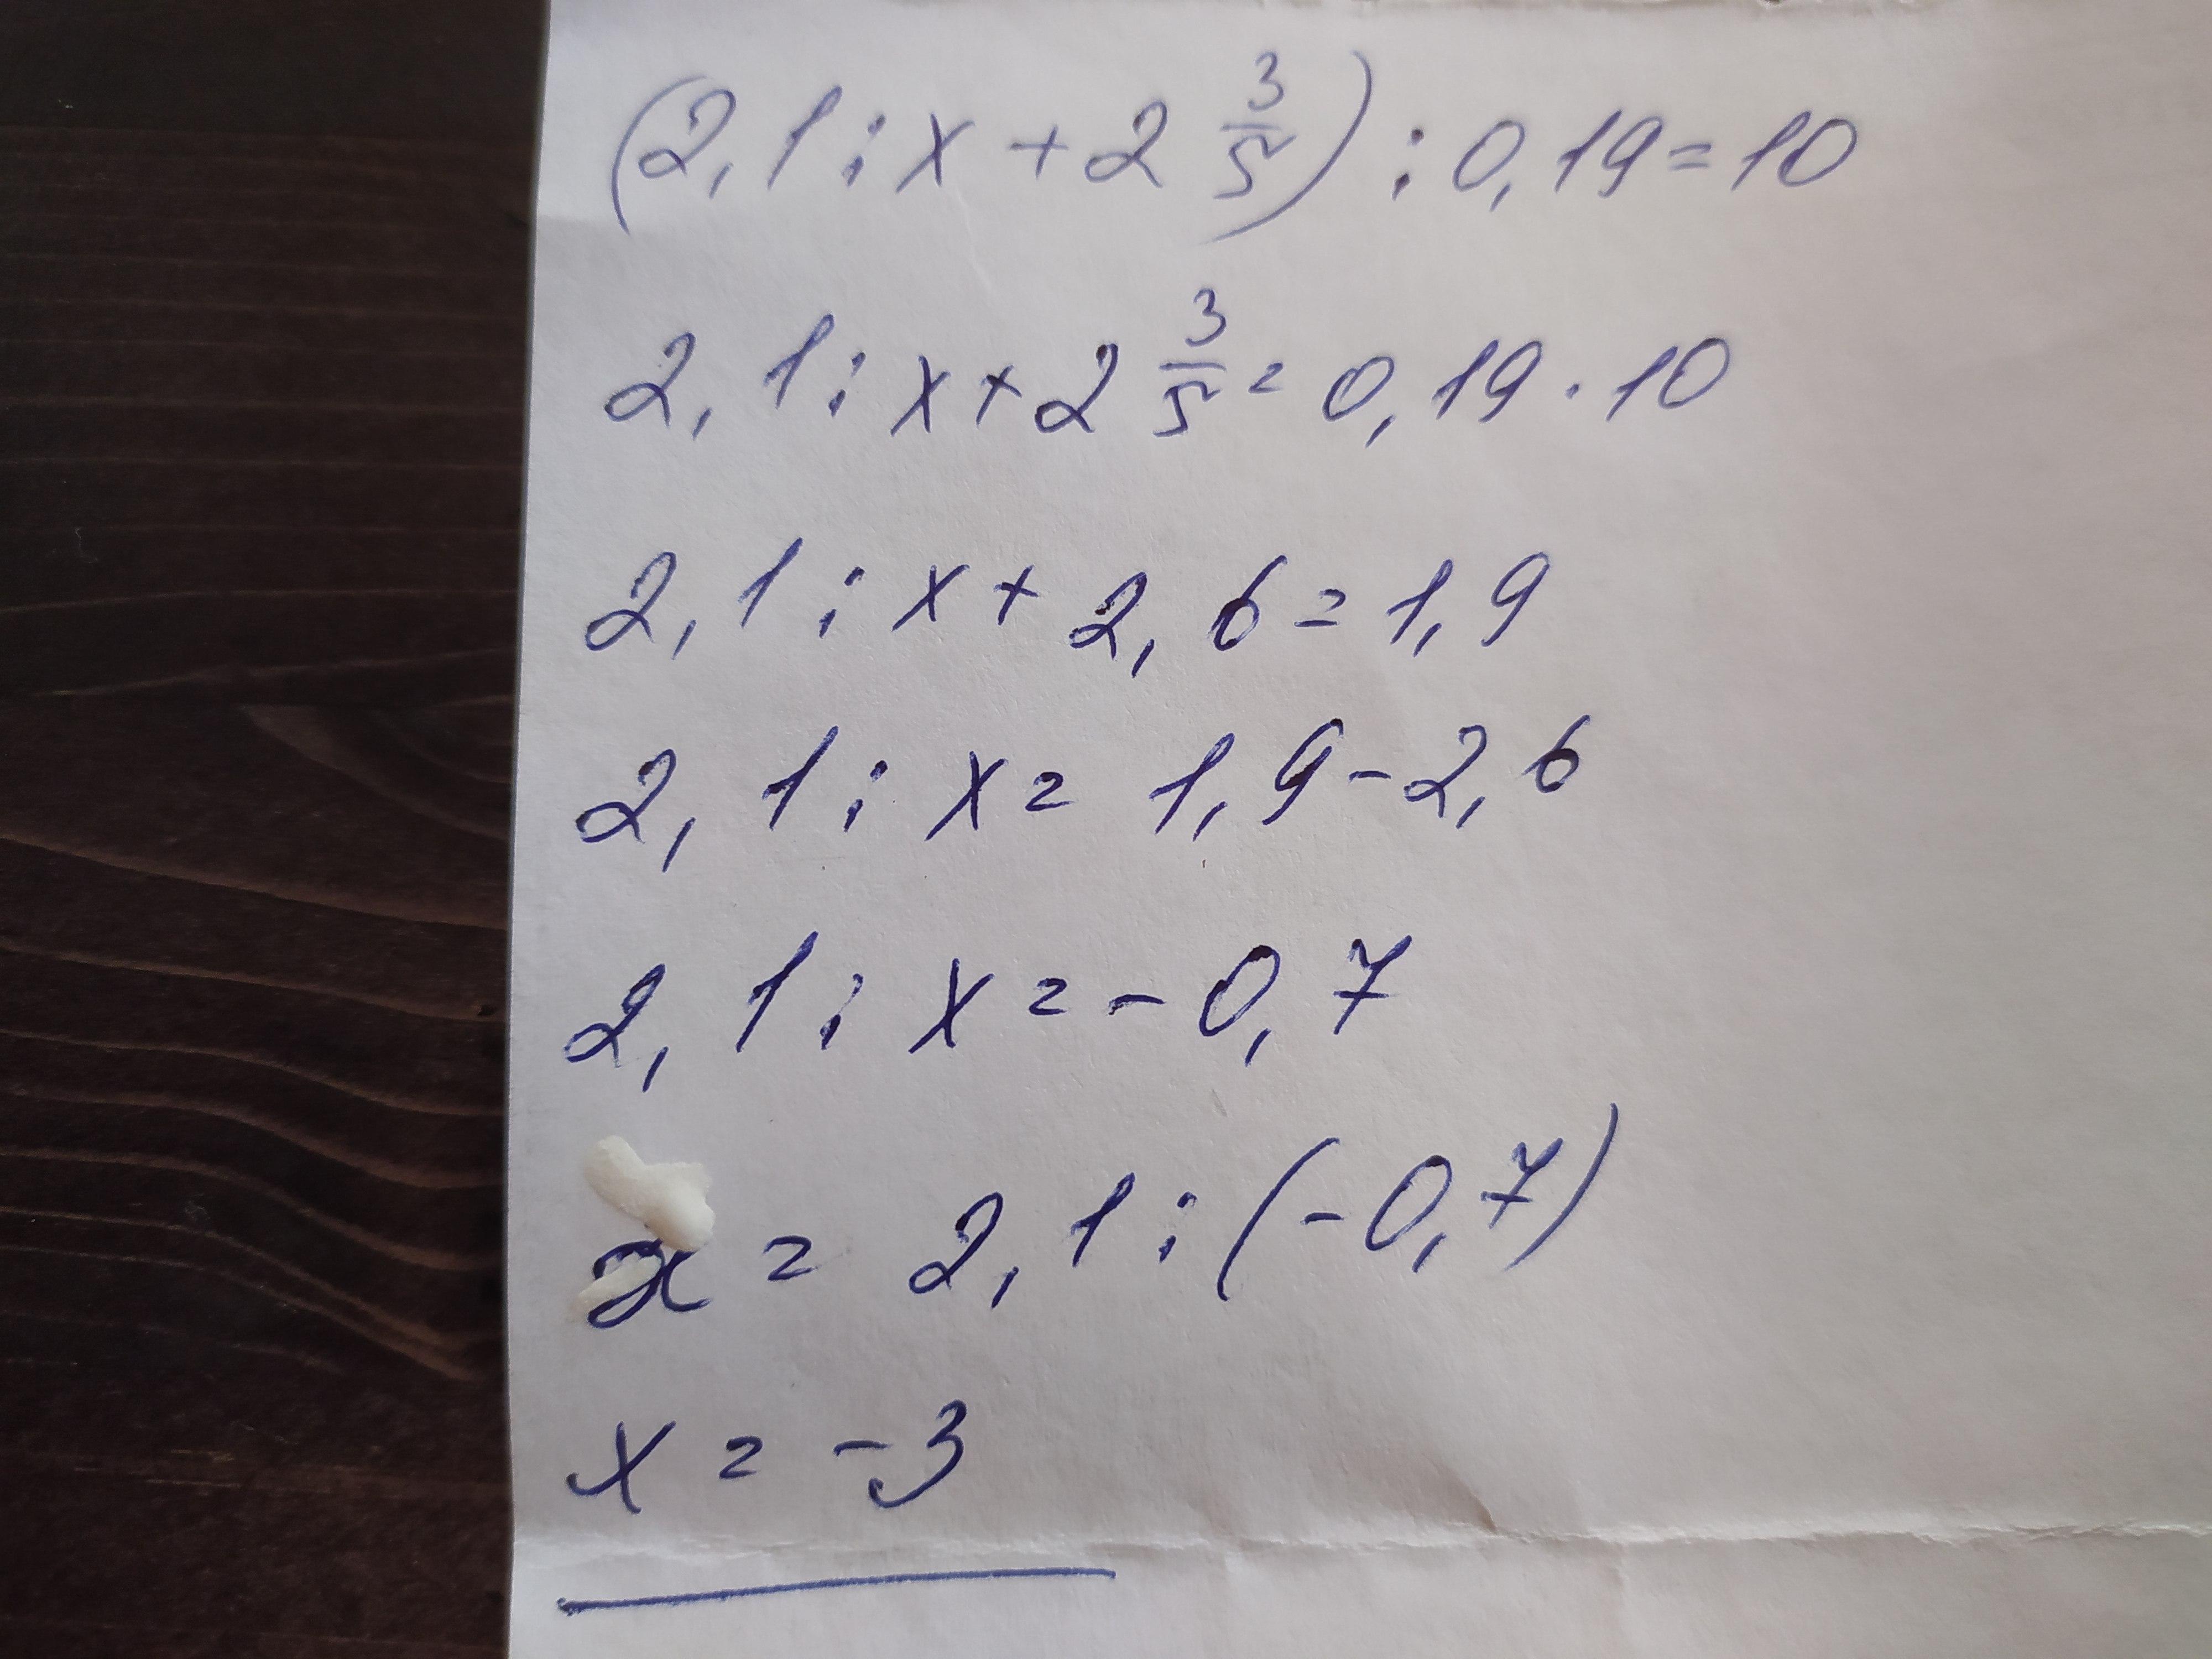 (2,1 : x + 2 3/5) : 0,19 = 10
2,1 : x + 2 3/5 = 0,19 · 10
2,1 : x + 2,6 = 1,9
2,1 : x = 1,9 - 2,6
2,1 : x = - 0,7
x = 2,1 : (-0,7)
x = -3